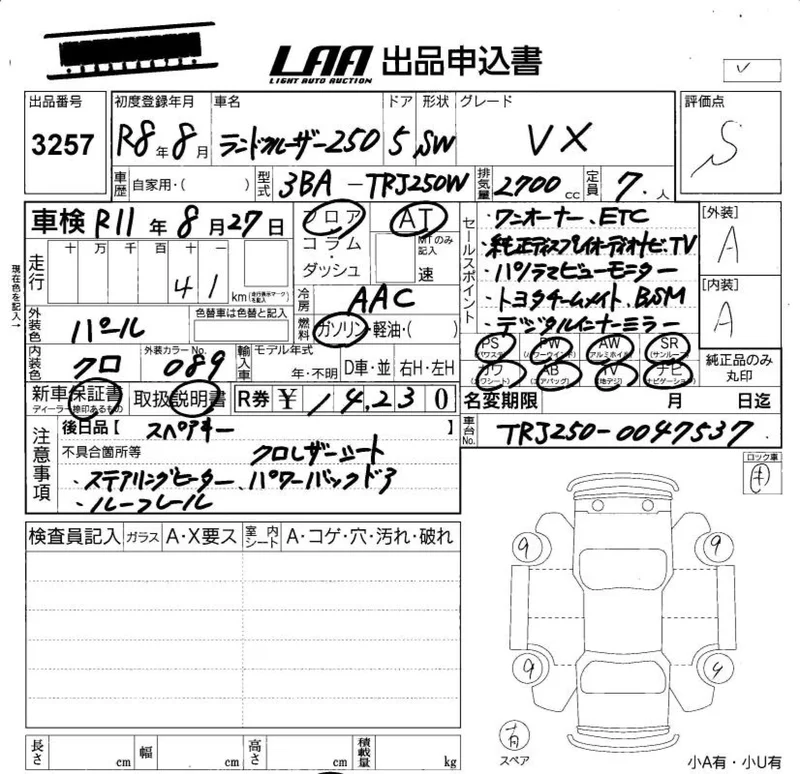 LAA 出品申込書
LIGHT AUTO AUCTION
出品番号 初度登録年月 車名 ドア 形状 グレード 評価点
3257 R8年8月 ランドクルーザー250 5 SW VX S
車歴 自家用・( ) 型式 3BA-TRJ250W 排気量 2700cc 定員 7人
車検 R11年8月27日 フロア・コラム・ダッシュ AT MTのみ記入 速
セールスポイント
・ワンオーナー、ETC
・純正ディスプレイオーディオナビ、TV
・パノラマビューモニター
・トヨタチームメイト、BSM
・デジタルインナーミラー
[外装] A
[内装] A
現在色を記入→
走行 十万千百十一 41 km (走行表示マークを記入)
冷房 AAC
外装色 パール 色替車は色替と記入 燃料 ガソリン・軽油・( )
内装色 クロ 外装カラーNo. 089 輸入車 モデル年式 年・不明 D車・並 右H・左H
PS (パワステ) PW (パワーウインド) AW (アルミホイル) SR (サンルーフ)
カワ (カワシート) AB (エアバッグ) TV (地デジ) ナビ (ナビゲーション)
純正品のみ丸印
新車保証書 ディーラー捺印あるもの 取扱説明書 R券 ¥14,230 名変期限 月 日迄
注意事項 後日品【 スペアキー 】 車台No. TRJ250-0047537
不具合箇所等 クロレザーシート
・ステアリングヒーター、パワーバックドア
・ルーフレール
ロック車
キ
検査員記入 ガラス A・X要ス 室内シート A・コゲ・穴・汚れ・破れ
9 9
9 9
有
スペア
長さ cm 幅 cm 高さ cm 積載量 kg
小A有・小U有